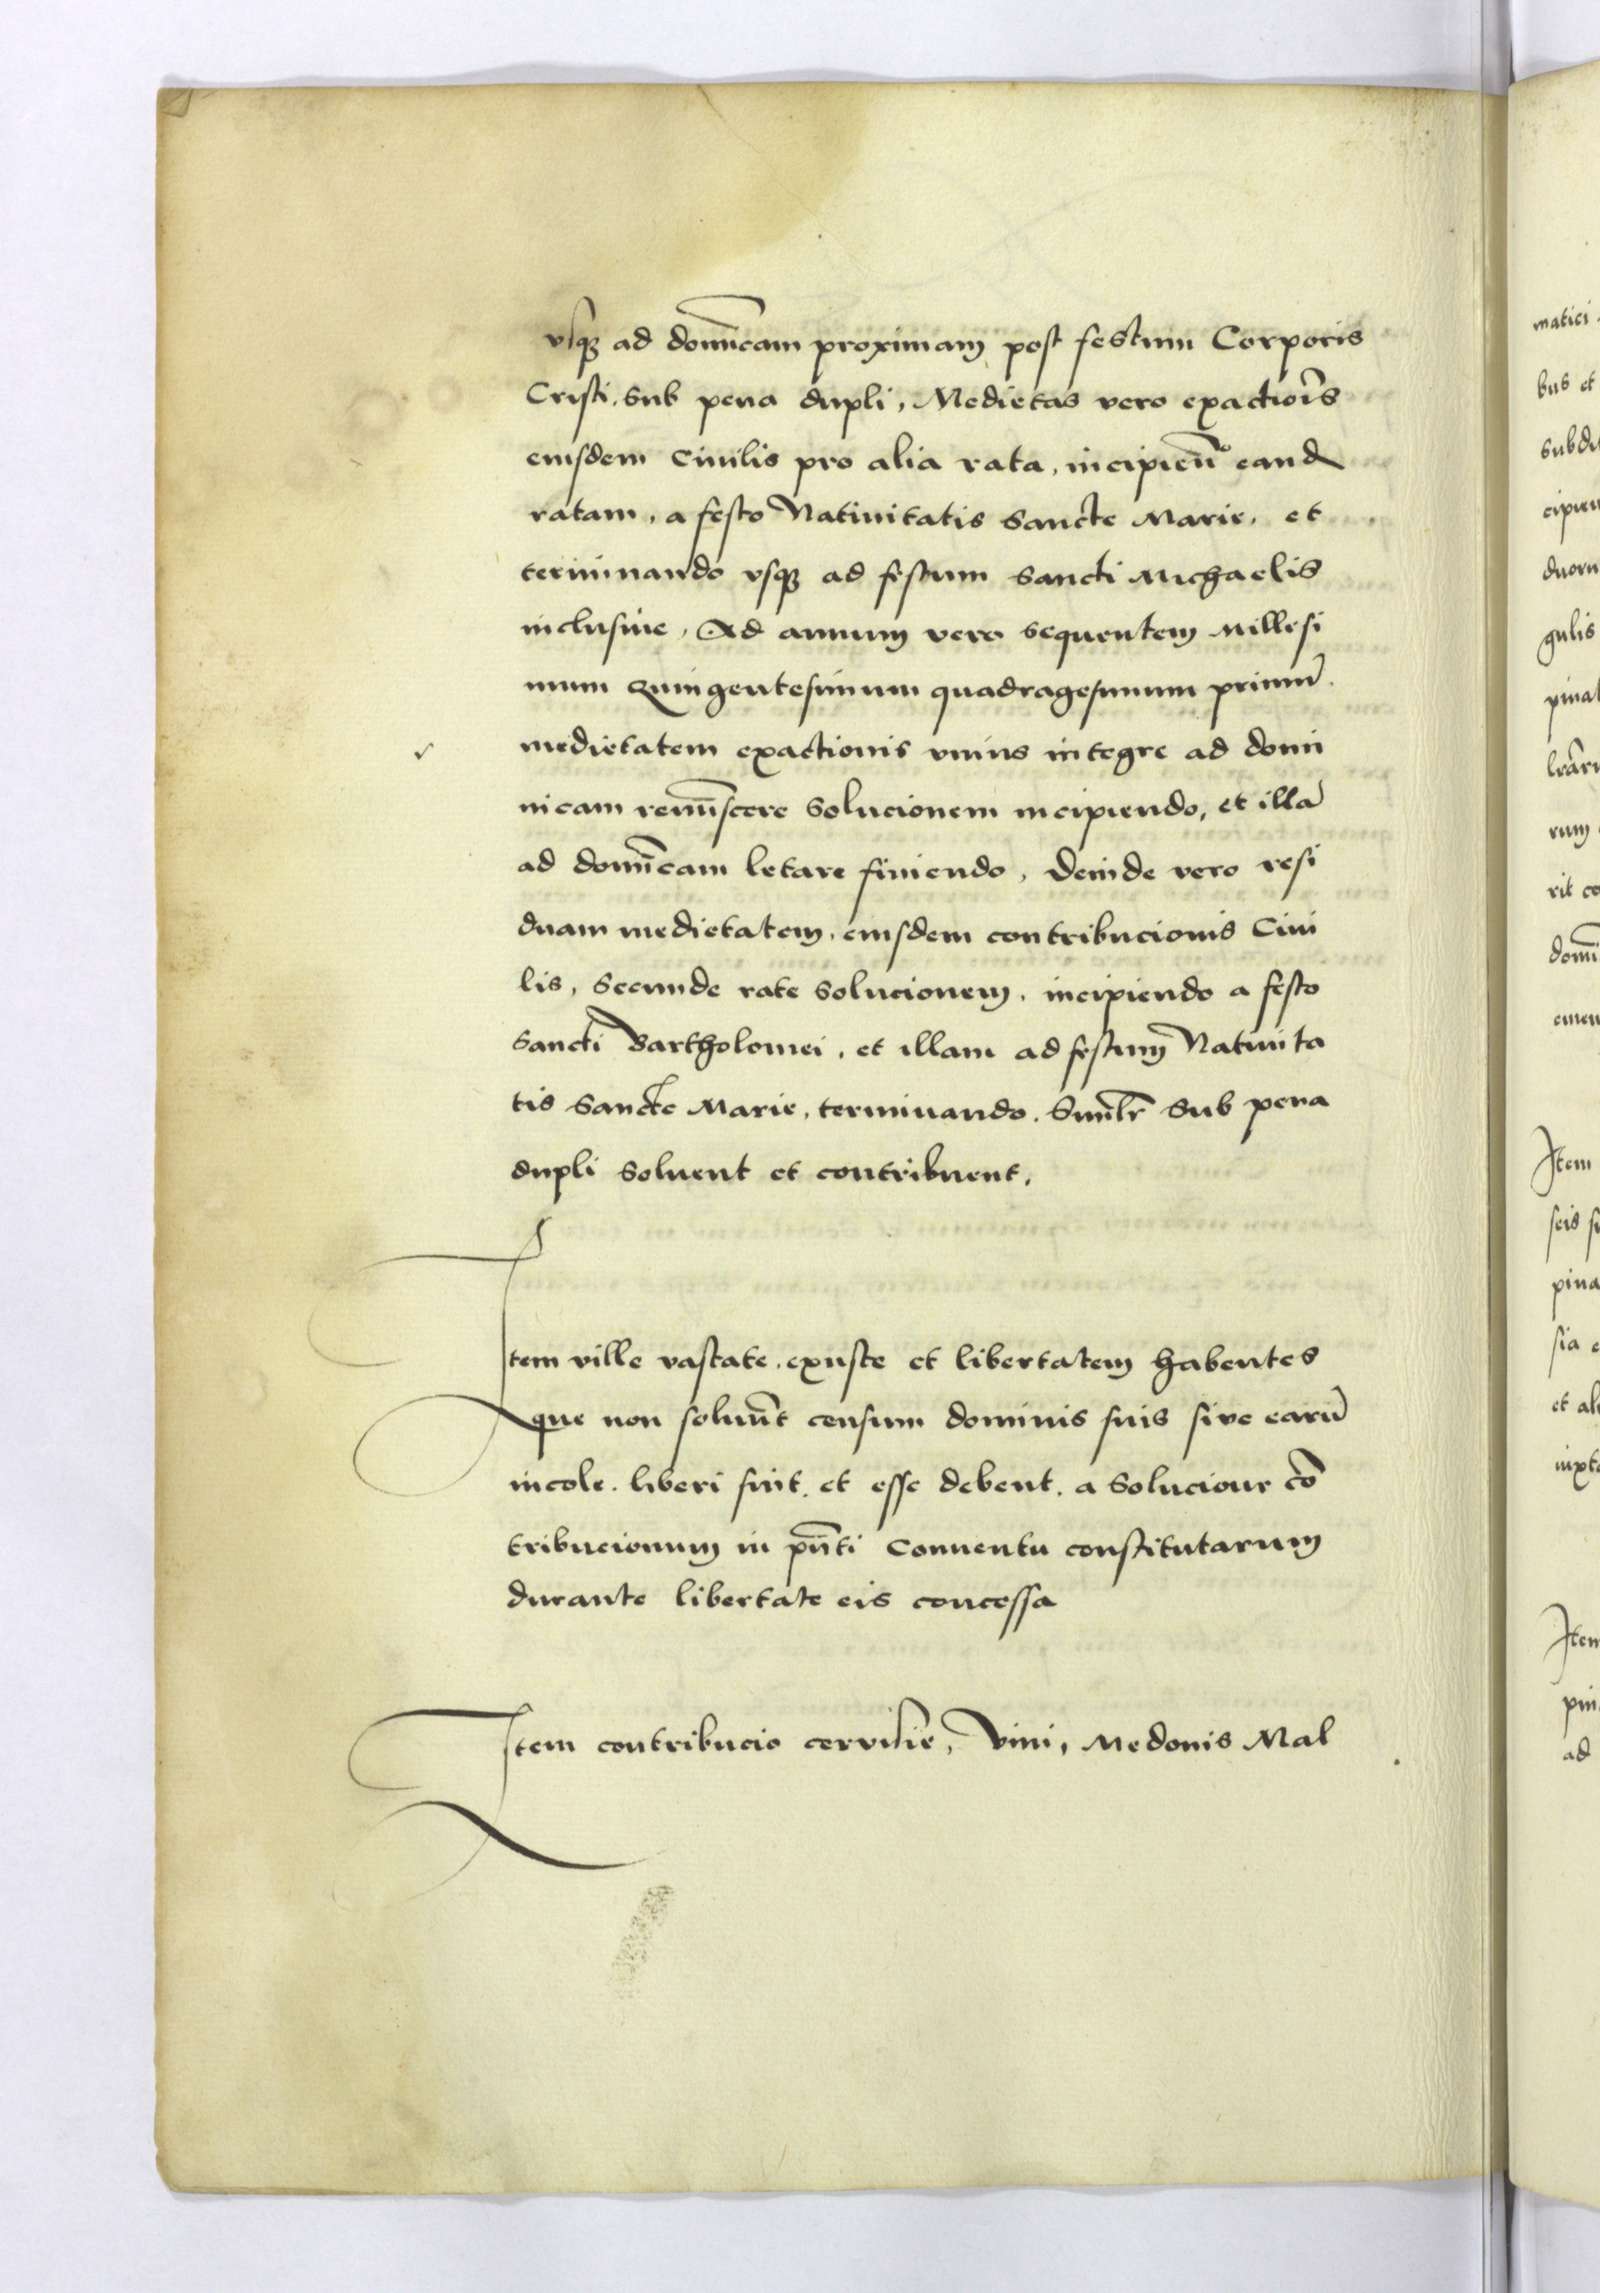 vsqꝫ ad domīcam proximam post festum Corporis
Cristi. sub pena dupli, Medietas vero exactiōis
eiusdem Ciuilis pro alia rata, incipien̄o eand
ratam, a festo Natiuitatis Sancte Marie, et
terminando vsqꝫ ad festum Sancti Michaelis
inclusiue, Ad annum vero sequentem Millesi
mum Quingentesimum quadragesimum primū.
medietatem exactionis vnius integre ad domi
nicam remīscere Solucionem incipiendo, et illā
ad domīcam letare finiendo, Deinde vero resi
duam medietatem, eiusdem contribucionis Ciui
lis, Secunde rate Solucionem, incipiendo a festo
Sancti Bartholomei, et illam ad festum Natiuita
tis Sancte Marie, terminando. Simīlr Sub pena
dupli Soluent et contribuent,
Item ville vastate. exuste et libertatem habentes
que non soluūt censum dominis suis sive earū
incole. liberi sint. et esse debent. a Solucione cō
tribucionum in pn̄ti Conuentu constitutarum
durante libertate eis concessa
Item contribucio cervisie, Vini, Medonis Mal
matici
bus et
gulis
rum
rit co
domī
Item
et al
Item
ad